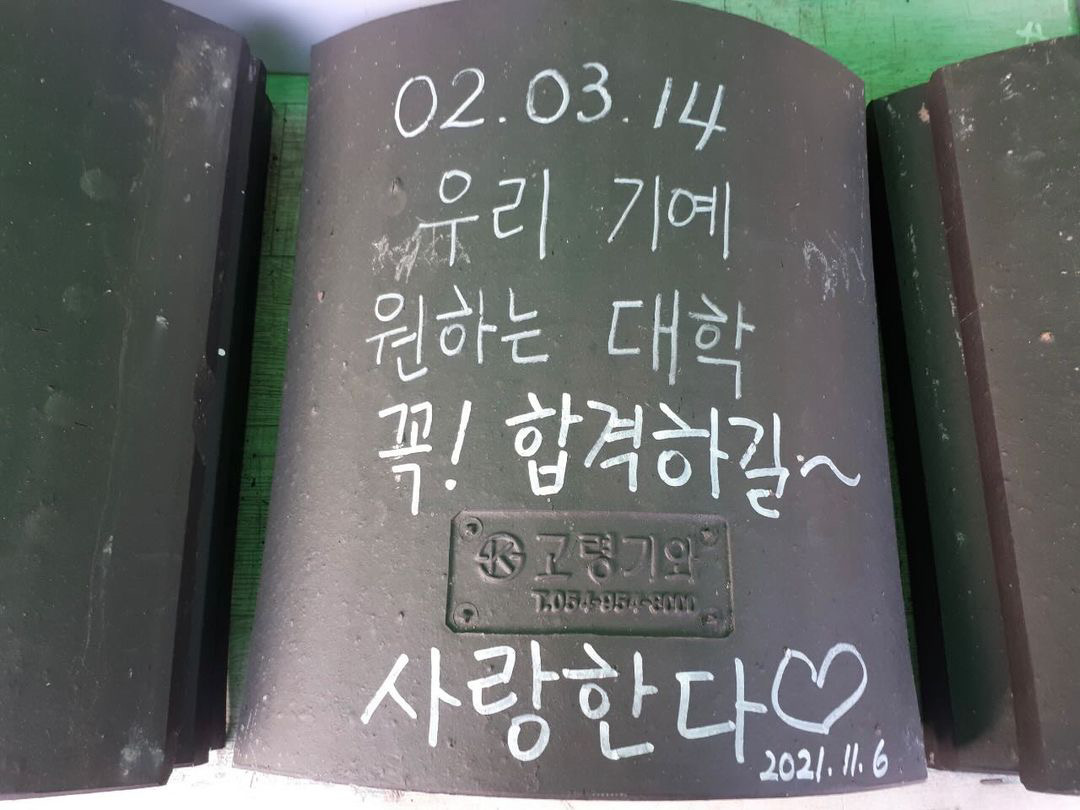 02.03.14
우리 기예
원하는 대학
꼭! 합격하길~
K 고령기와
T.054-954-8000
사랑한다♡
2021.11.6